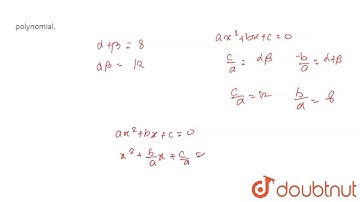 polynomial.
α+β = 8
αβ = 12
ax²+bx+c=0
c/a = αβ
-b/a = α+β
c/a = 12
b/a = 8
ax²+bx+c=0
x²+b/a x+c/a =
doubtnut